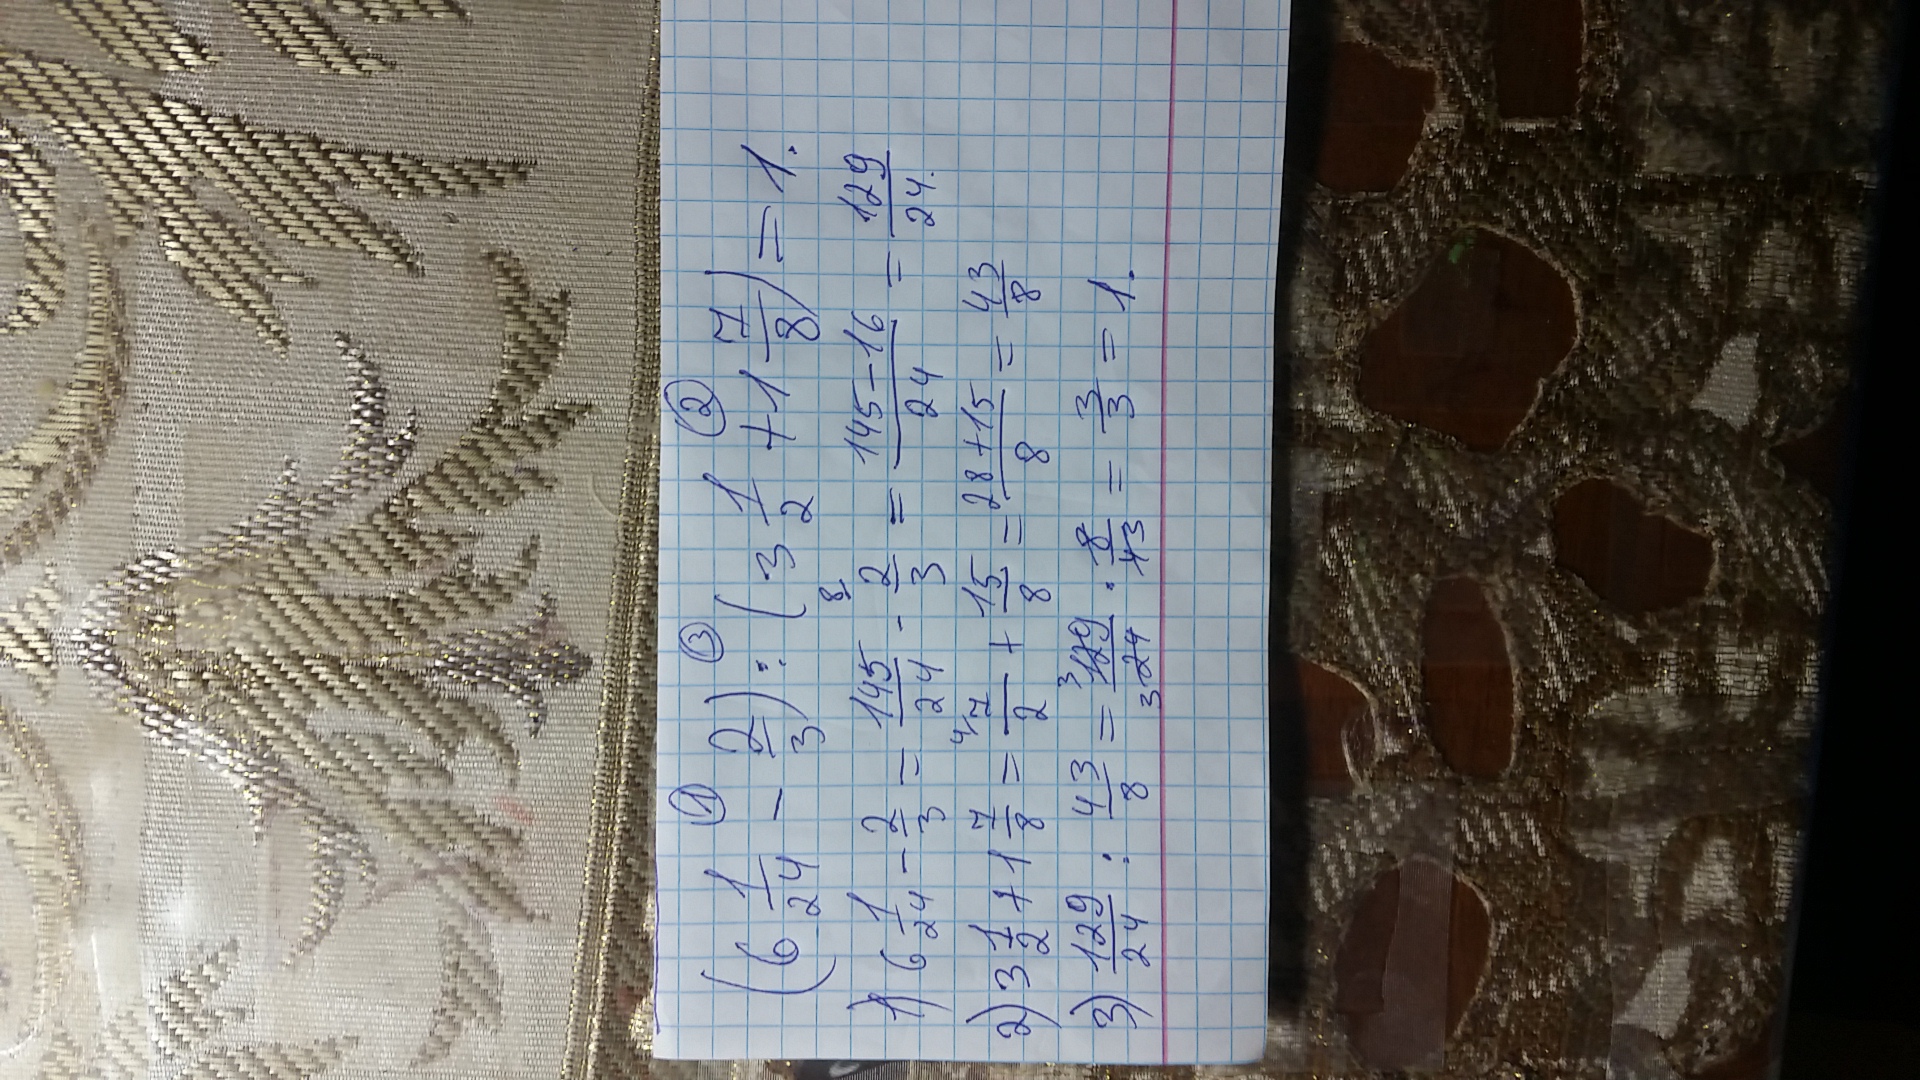 ① ③ ②
(6 1/24 − 2/3) : (3 1/2 + 1 7/8) = 1.
1) 6 1/24 − 2/3 = 145/24 − 2/3 ⁸⁄ = (145−16)/24 = 129/24.
2) 3 1/2 + 1 7/8 = ⁴⁄ 7/2 + 15/8 = (28+15)/8 = 43/8
3) 129/24 : 43/8 = ³129/₃24 · 8/43 = 3/3 = 1.